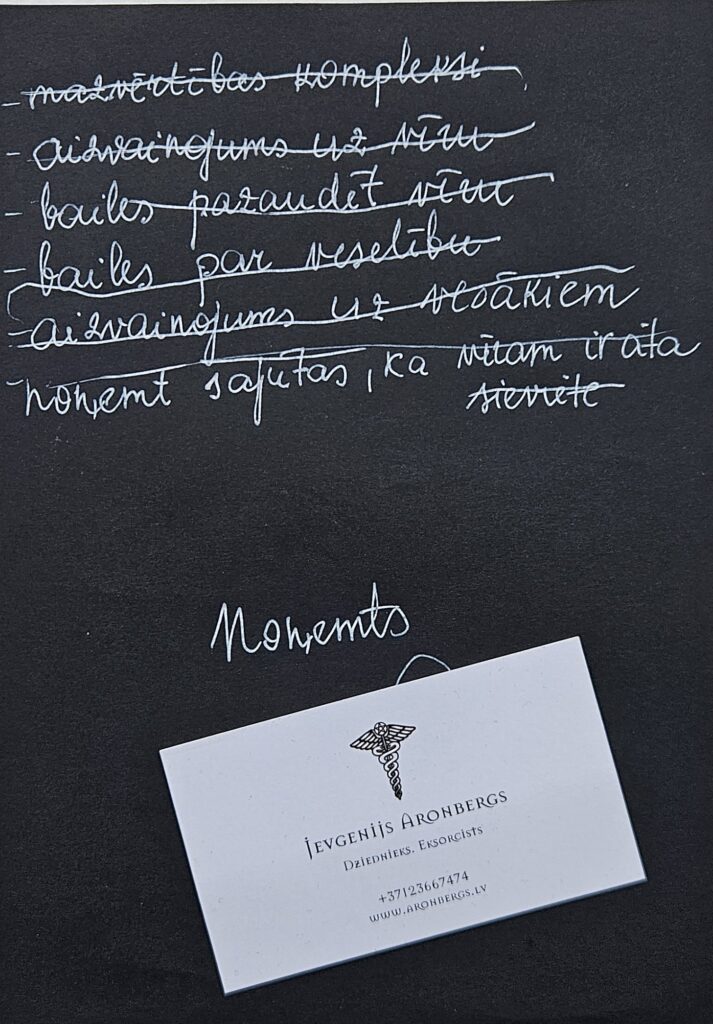 - mazvērtības kompleksi
- aizvainojums uz vīru
- bailes pazaudēt vīru
- bailes par veselību
- aizvainojums uz vecākiem
- noņemt sajūtas, ka vīram ir cita
sieviete
Noņemts
Jevgenijs Aronbergs
Dziednieks, Eksorcists
+37123667474
www.aronbergs.lv